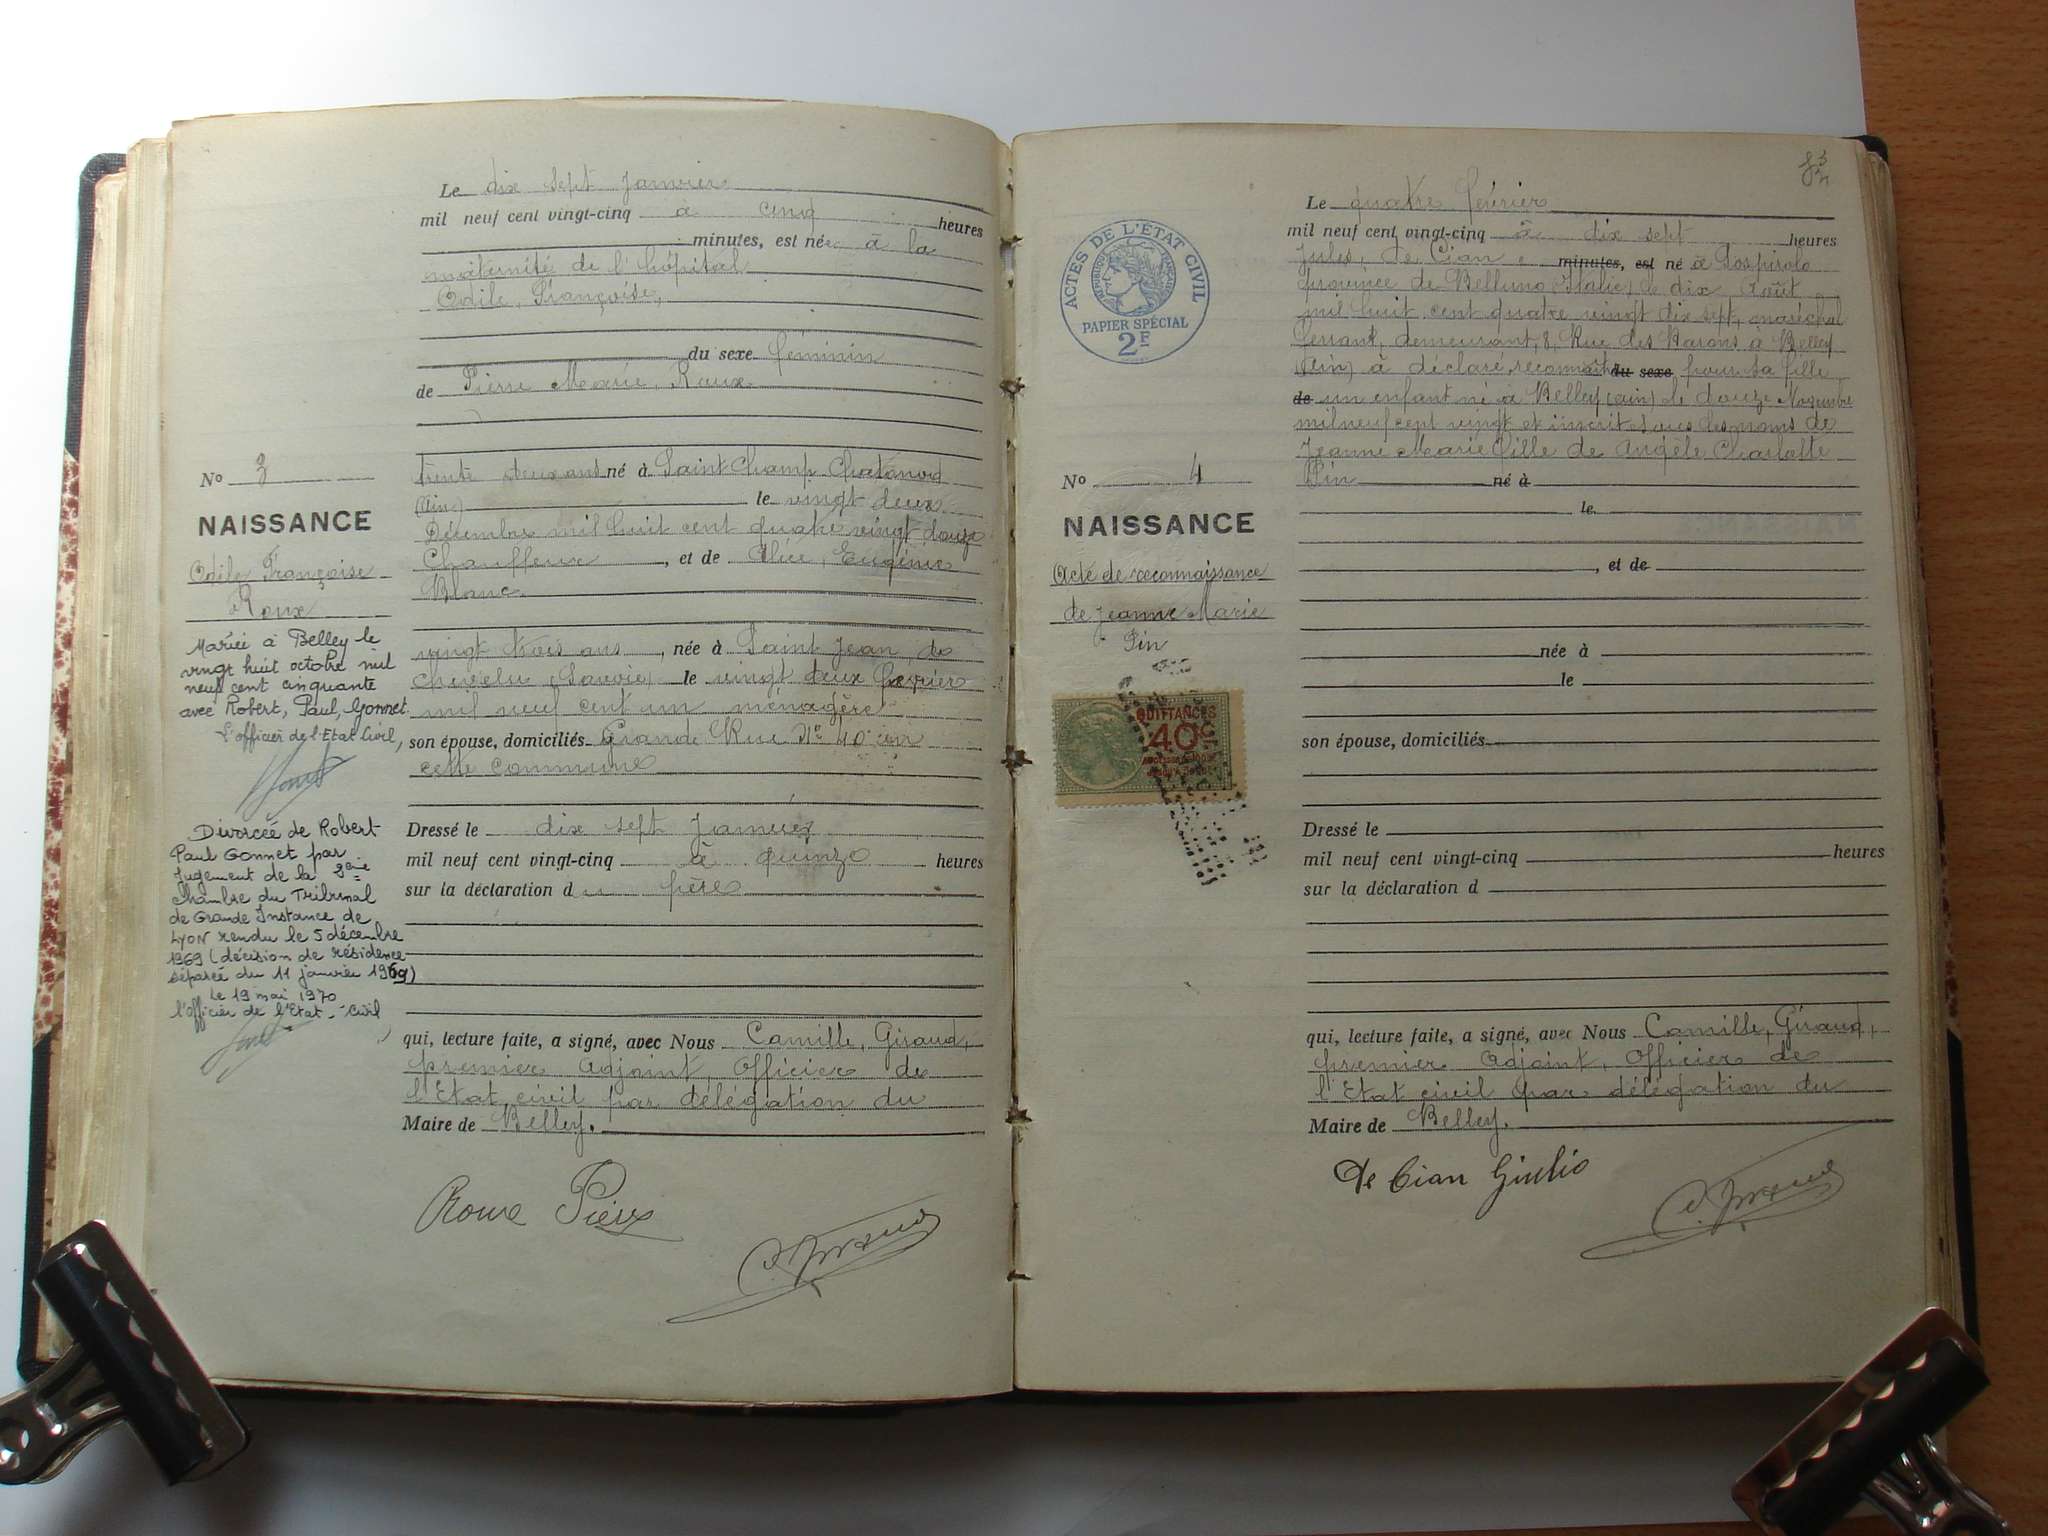 Le dix sept Janvier
mil neuf cent vingt-cinq à cinq heures
minutes, est née à la
maternité de l'hôpital
Odile, Françoise,
du sexe féminin
de Pierre Marie, Roux
No 3
NAISSANCE
Odile Françoise
Roux
Mariée à Belley le
vingt huit octobre mil
neuf cent cinquante
avec Robert, Paul, Gonnet.
L'officier de l'Etat Civil,
Divorcée de Robert
Paul Gonnet par
Jugement de la 3eme
chambre du Tribunal
de Grande Instance de
LYON rendu le 5 décembre
1969 (décision de résidence
séparée du 11 janvier 1969)
Le 19 mai 1970
l'officier de l'Etat-Civil
trente deux ans né à Saint Champ Chatonod
(Ain) le vingt deux
Décembre mil huit cent quatre vingt douze
Chauffeur, et de Alice, Eugénie
Blanc
vingt trois ans, née à Saint Jean de
Chevelu (Savoie) le vingt deux Fevrier
mil neuf cent un ménagère
son épouse, domiciliés Grande Rue No 40 en
cette commune
Dressé le dix sept Janvier
mil neuf cent vingt-cinq à quinze heures
sur la déclaration du père
qui, lecture faite, a signé, avec Nous Camille, Giraud,
premier Adjoint, Officier de
l'Etat civil par délégation du
Maire de Belley.
Roux Pierre
C. Giraud
83
Le quatre février
mil neuf cent vingt-cinq à dix sept heures
Jules, de Cian minutes, est né à Sospirolo
province de Belluno (Italie) le dix Août
mil huit cent quatre vingt dix sept, maréchal
ferrant, demeurant, 8, Rue des Barons à Belley
(Ain) à déclaré reconnaître du sexe pour sa fille
de un enfant né à Belley (Ain) le douze Novembre
mil neuf cent vingt et inscrit sous les noms de
Jeanne Marie fille de Angèle Charlotte
Pin né à
le
ACTES DE L'ÉTAT CIVIL
RÉPUBLIQUE FRANÇAISE
PAPIER SPÉCIAL
2F
No 4
NAISSANCE
Acte de reconnaissance
de Jeanne Marie
Pin
QUITTANCES
40c
, et de
née à
le
son épouse, domiciliés
Dressé le
mil neuf cent vingt-cinq heures
sur la déclaration d
qui, lecture faite, a signé, avec Nous Camille, Giraud,
premier Adjoint, Officier de
l'Etat civil par délégation du
Maire de Belley.
De Cian Giulio
C. Giraud